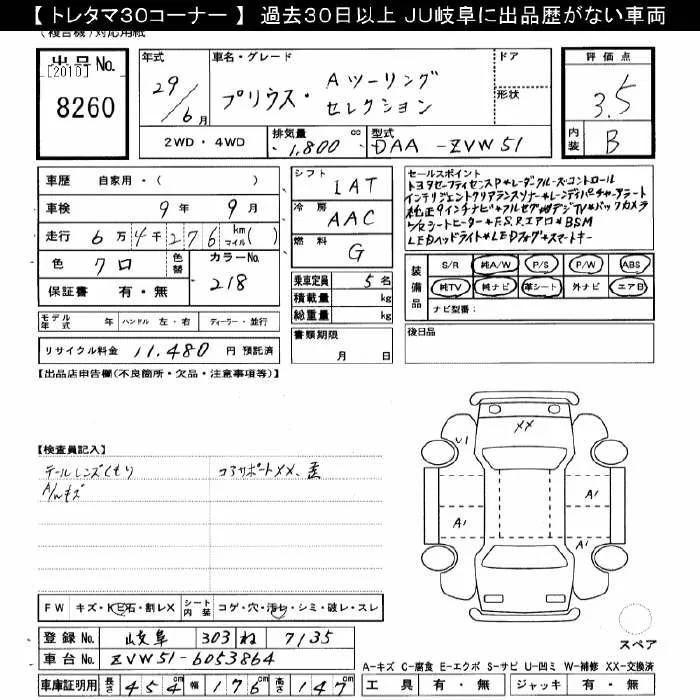 【 トレタマ30コーナー 】 過去30日以上 JU岐阜に出品歴がない車両
(複合機)対応用紙
出品No.
[2010]
8260
年式
29/6月
車名・グレード
プリウス・ Aツーリング
セレクション
ドア
形状
2WD・4WD
排気量 1,800 cc
型式 DAA-ZVW51
評価点
3.5
内装 B
車歴 自家用・( )
車検 9年 9月
走行 6万4千276km マイル( )
色 クロ
色替
カラーNo. 218
保証書 有・無
シフト IAT
冷房 AAC
燃料 G
乗車定員 5名
積載量 kg
総重量 kg
セールスポイント
トヨタセーフティセンスP*レーダークルーズコントロール
インテリジェントクリアランスソナー*レーンディパーチャーアラート
純正9インチナビ*フルセグ地デジTV*バックカメラ
シートヒーター*F.S.Rエアロ*BSM
LEDヘッドライト*LEDフォグ*スマートキー
装備品
S/R 純A/W P/S P/W ABS
純TV 純ナビ 革シート 外ナビ エアB
ナビ型番:
モデル年式 年 ハンドル 左・右 ディーラー・並行
書類期限
月 日
後日品
リサイクル料金 11,480 円 預託済
【出品店申告欄(不良箇所・欠品・注意事項等)】
【検査員記入】
テールレンズくもり
コアサポートXX、歪
A/Wキズ
XX
U1
A1
A1
A1
FW キズ・トビ石・割レX
シート内装 コゲ・穴・汚レ・シミ・破レ・スレ
スペア
登録No. 岐阜 303 ね 7135
車台No. ZVW51-6053864
A-キズ C-腐食 E-エクボ S-サビ U-凹ミ W-補修 XX-交換済
車庫証明用 長さ 454cm 幅 176cm 高さ 147cm
工具 有・無 ジャッキ 有・無